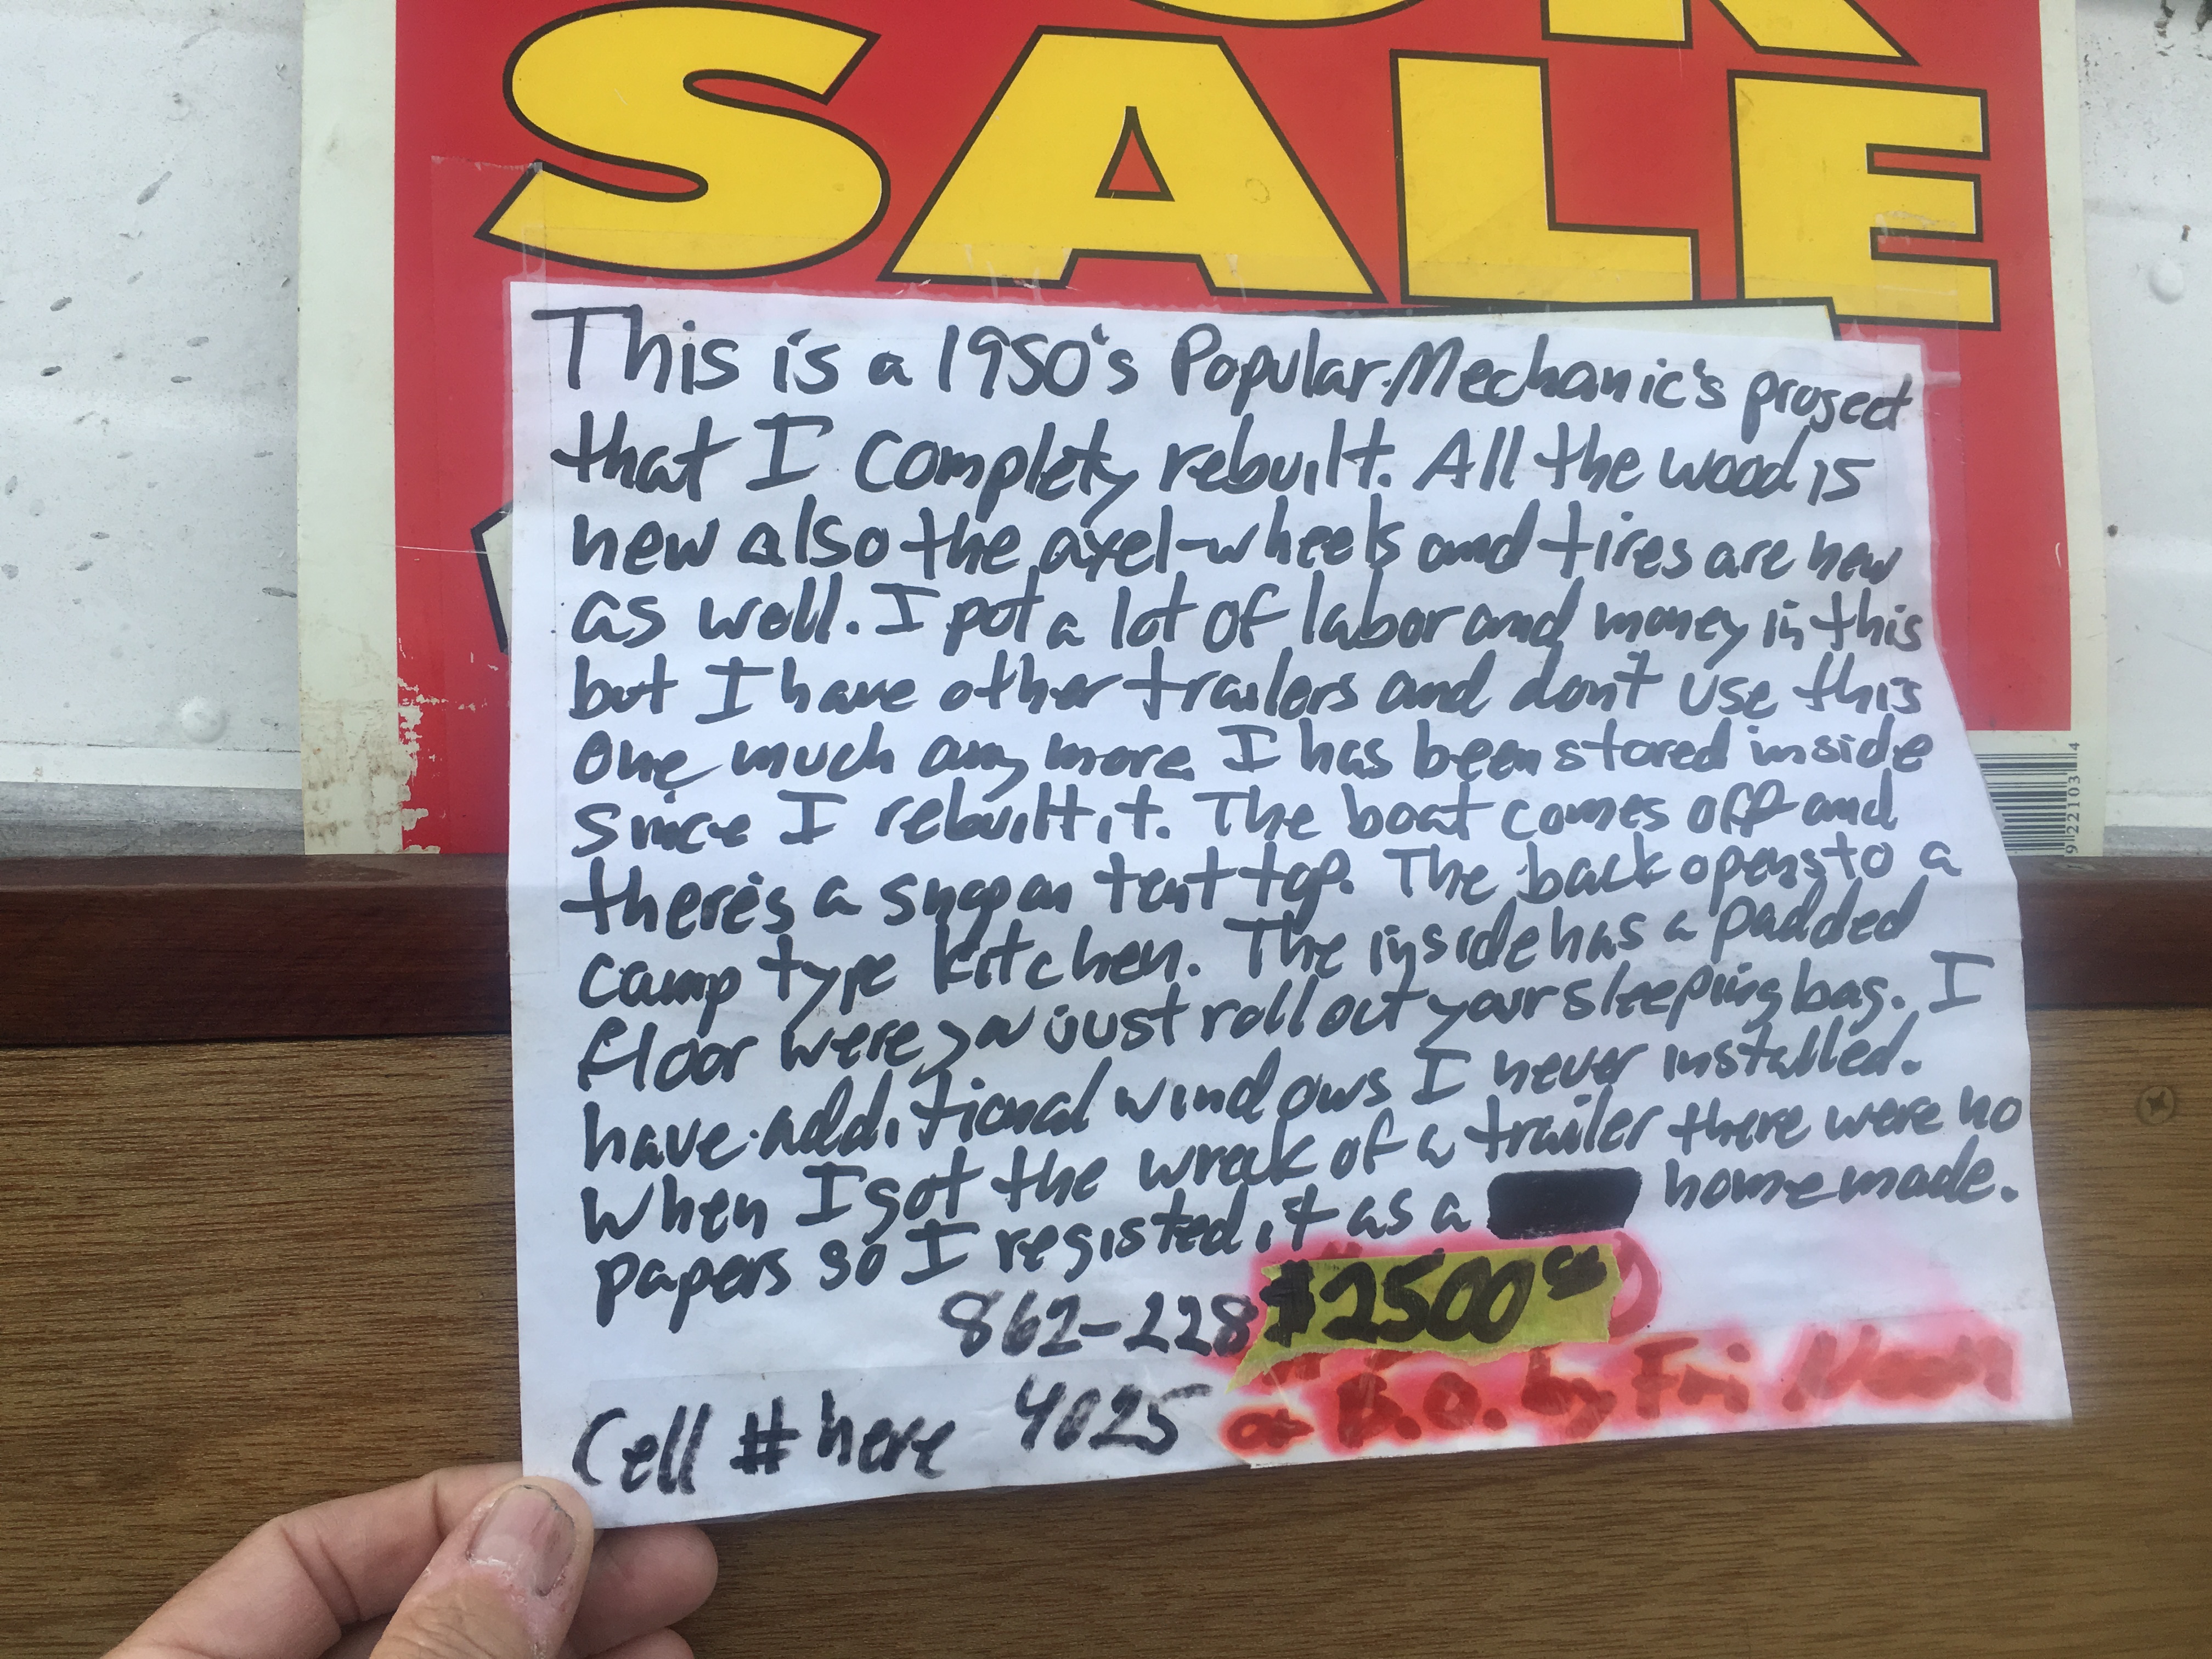 SALE
This is a 1950's Popular Mechanic's project
that I complety rebuilt. All the wood is
new also the axel-wheels and tires are new
as well. I pot a lot of labor and money in this
but I have other trailers and don't use this
one much any more. I has been stored inside
since I rebuilt it. The boat comes off and
there's a snap on tent top. The back opens to a
camp type kitchen. The inside has a padded
floor were you just roll out your sleeping bag. I
have additional windows I never installed.
When I got the wreck of a trailer there were no
papers so I registed it as a homemade.
862-228 $2500
4025 or B.O. by Fri Noon
Cell # here
9221034